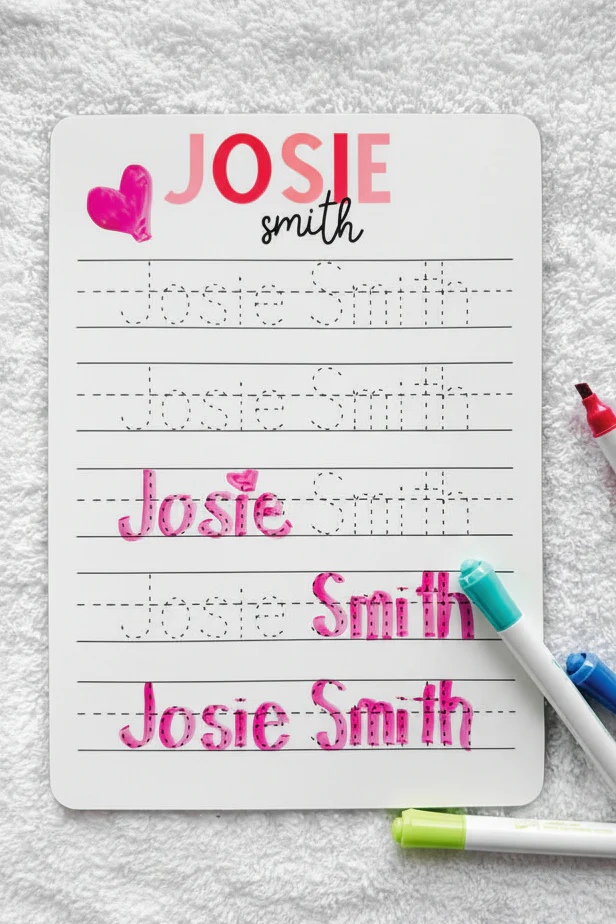 JOSIE
smith
Josie Smith
Josie Smith
Josie Smith
Josie Smith
Josie Smith